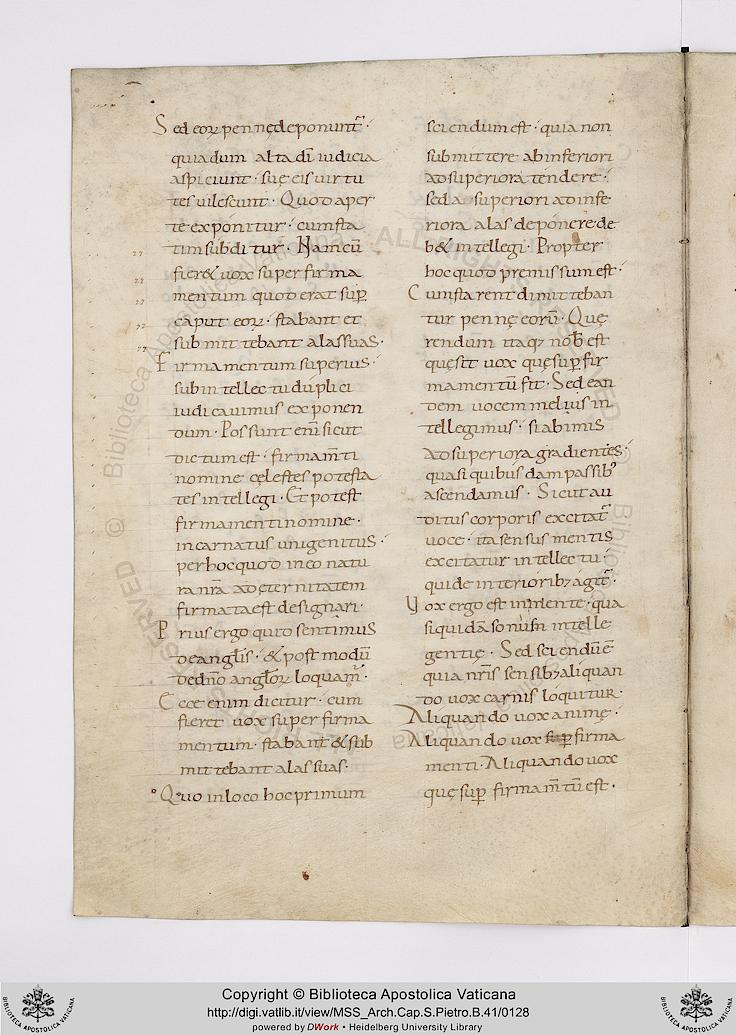 Sed eoꝝ pennę deponunt̃·
quia dum alta dĩ iudicia
aspiciunt· suę eis uirtu
tes uilescunt· Quod aper
te exponitur· cum sta
tim subditur· Nam cũ
fieret uox super firma
mentum quod erat suꝑ
caput eoꝝ· stabant et
submittebant alas suas·
Firmamentum superius·
sub intellectu duplici
iudicauimus exponen
dum· Possunt enĩ sicut
dictum est· firmam̃ti
nomine celestes potesta
tes intellegi· Et potest
firmamenti nomine·
incarnatus unigenitus·
per hoc quod in eo natu
ra nr̃a ad eternitatem
firmata est designari·
Prius ergo quid sentimus
de angl̃is· & post modũ
de dnõ angl̃oꝝ loquam̃·
Ecce enim dicitur· cum
fieret uox super firma
mentum· stabant & sub
mittebant alas suas·
Quo in loco hoc primum
sciendum est· quia non
submittere ab inferiori
ad superiora tendere·
sed a superiori ad infe
riora alas deponere de
b& intellegi· Propter
hoc quod premissum est·
Cum starent dimitteban
tur pennę eorũ· Quę
rendum itaq; nob̃ est
quę sit uox quę suꝑ fir
mamentũ fit· Sed ean
dem uocem melius in
tellegimus· si ab imis
ad superiora gradientes·
quasi quibusdam passib;
ascendamus· Sicut au
ditus corporis excitat̃
uoce· ita sensus mentis
excitatur intellectui
qui de interiorib; agit̃·
Uox ergo est in mente· qua
si quidã sonus intelle
gentię· Sed sciendũ ẽ
quia nr̃is sensib; aliquan
do uox carnis loquitur·
Aliquando uox animę·
Aliquando uox suꝑ firma
menti· Aliquando uox
quę suꝑ firmam̃tũ est·
Copyright © Biblioteca Apostolica Vaticana
http://digi.vatlib.it/view/MSS_Arch.Cap.S.Pietro.B.41/0128
powered by DWork • Heidelberg University Library
BIBLIOTECA APOSTOLICA VATICANA
BIBLIOTECA APOSTOLICA VATICANA